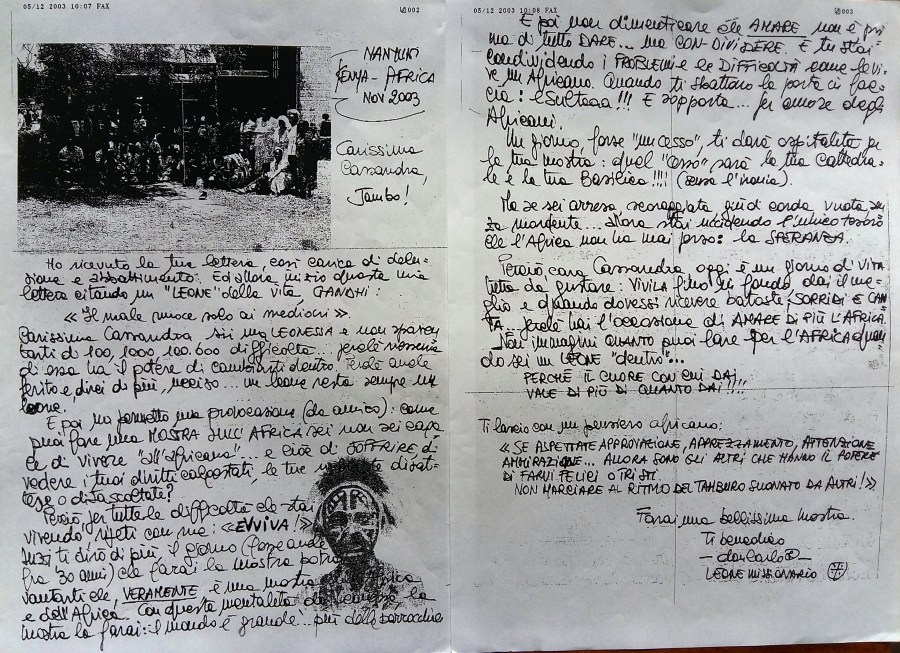 05/12 2003 10:07 FAX
002
NANYUKI
KENYA - AFRICA
NOV 2003
Carissima
Cassandra,
Jambo!
Ho ricevuto la tua lettera, così carica di delu-
sione e abbattimento. Ed allora inizio questa mia
lettera citando un "LEONE" della vita, GANDHI:
« Il male nuoce solo ai mediocri ».
Carissima Cassandra, sii una LEONESSA e non spaven-
tarti di 100, 1000, 100.000 difficoltà... perché nessuna
di essa ha il potere di cambiarti dentro. Perché anche
ferito e direi di più, ucciso... un leone resta sempre un
leone.
E poi mi permetto una provocazione (da amico): come
puoi fare una MOSTRA SULL'AFRICA se non sei capa-
ce di vivere "all'africana"... e cioè di SOFFRIRE, di
vedere i tuoi diritti calpestati, le tue disat-
tese o disascoltate?
Perciò, per tutte le difficoltà che stai
vivendo ripeti con me: «EVVIVA!»
Anzi ti dirò di più il giorno (forse anche
fra 30 anni) che farai la mostra potrai
vantarti che, VERAMENTE è una mostra Africa
e dell'Africa. Con questa mentalità da leonessa, la
mostra la farai: il mondo è grande... più delle parrocchie
05/12 2003 10:08 FAX
003
E poi non dimenticare che AMARE non è pri
ma di tutto DARE... ma CON-DIVIDERE. E tu stai
condividendo i PROBLEMI e le DIFFICOLTÀ come le vi-
ve un Africano. Quando ti sbattono la porta in fac-
cia: esulta!!! E sopporta... per amore degli
Africani.
Un giorno, forse "un cesso", ti darà ospitalità per
la tua mostra: quel "cesso" sarà la tua Cattedra-
le e la tua Basilica!!!! (senza l'ironia).
Ma se sei arresa, scoraggiata, giù di corda, vuota sen
za mordente... allora stai uccidendo l'unico tesoro
che l'Africa non ha mai perso: la SPERANZA.
Perciò cara Cassandra, oggi è un giorno di VITA
tutta da gustare: VIVILA fino in fondo, dai il me-
glio e quando dovessi ricevere batoste, SORRIDI E CAN
TA, perché hai l'occasione di AMARE DI PIÙ L'AFRICA.
Non immagini QUANTO puoi fare per l'AFRICA quan
do sei un LEONE "dentro"...
PERCHÉ IL CUORE CON CUI DAI
VALE DI PIÙ DI QUANTO DAI!!!!
Ti lascio con un pensiero africano:
« SE ASPETTATE APPROVAZIONE, APPREZZAMENTO, ATTENZIONE
AMMIRAZIONE... ALLORA SONO GLI ALTRI CHE HANNO IL POTERE
DI FARVI FELICI O TRISTI.
NON MARCIARE AL RITMO DEL TAMBURO SUONATO DA ALTRI! ».
Farai una bellissima mostra.
Ti benedico
- don Carlo -
LEONE MISSIONARIO